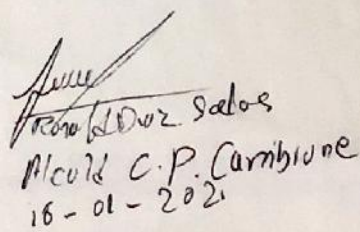 Ronald Diaz Salas
Alcald C.P. Carribiune
16-01-2021